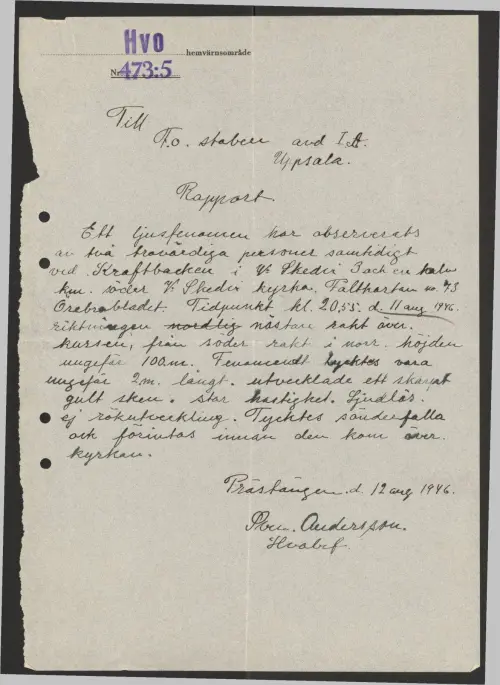 Hvo
hemvärnsområde
Nr 473:5
Till
F.o. staben avd I A.
Upsala.
Rapport
Ett ljusfenomen har observerats
av två trovärdiga personer samtidigt
vid Kraftbacken i V. Skedvi 3 och en halv
km. söder V. Skedvi kyrka. Fältkartan nr 93
Örebrobladet. Tidpunkt kl. 20,55. d. 11 aug 1946.
riktningen nordlig nästan rakt över
kursen, från söder rakt i norr. höjden
ungefär 100m. Fenomenet tycktes vara
ungefär 2m. långt. utvecklade ett skarpt
gult sken. stor hastighet. Ljudlös.
ej rökutveckling. Tycktes sönderfalla
och förintas innan den kom över
kyrkan.
Prästängen d. 12 aug 1946.
Andersson.
Hvobef